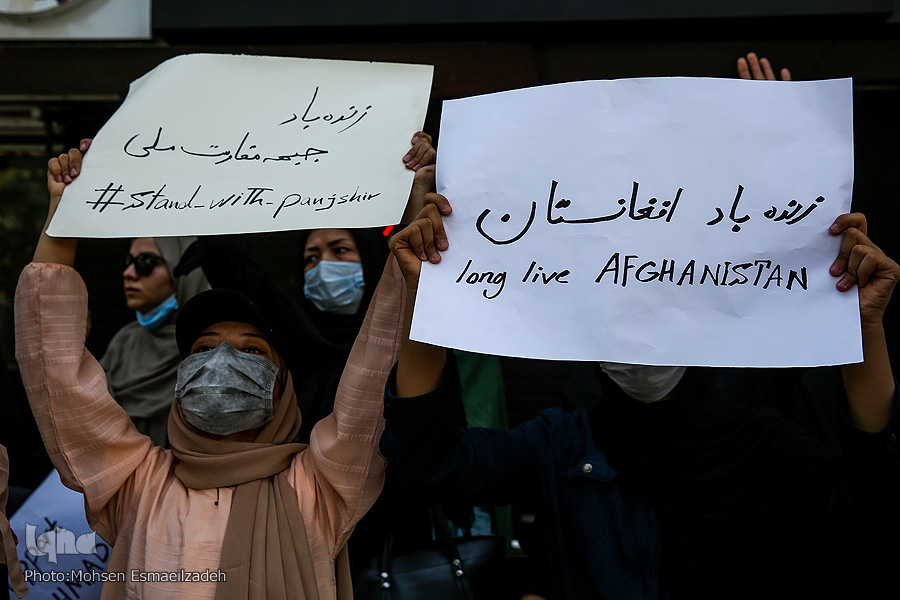 زنده باد
جبهه مقاومت ملی
#Stand_with_panjshir
زنده باد افغانستان
long live AFGHANISTAN
iqna
Photo:Mohsen Esmaeilzadeh